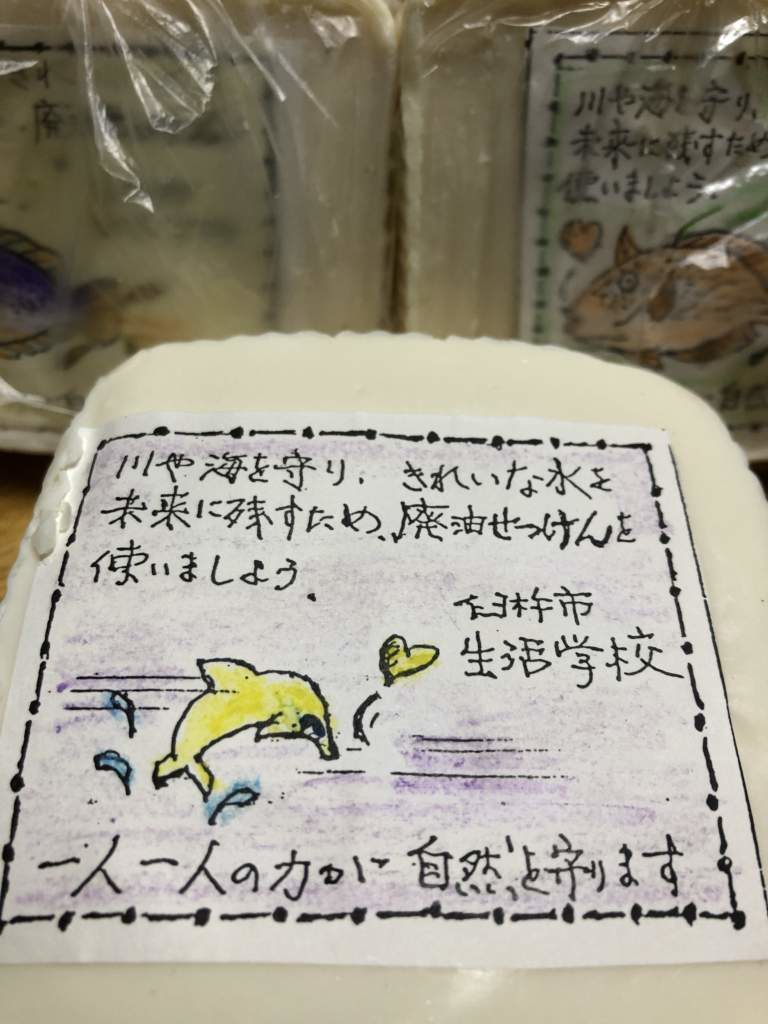 廃
川や海を守り、
未来に残すため
使いましょう。
川や海を守り、きれいな水を
未来に残すため、廃油せっけんを
使いましょう。
臼杵市
生活学校
一人一人の力が自然を守ります